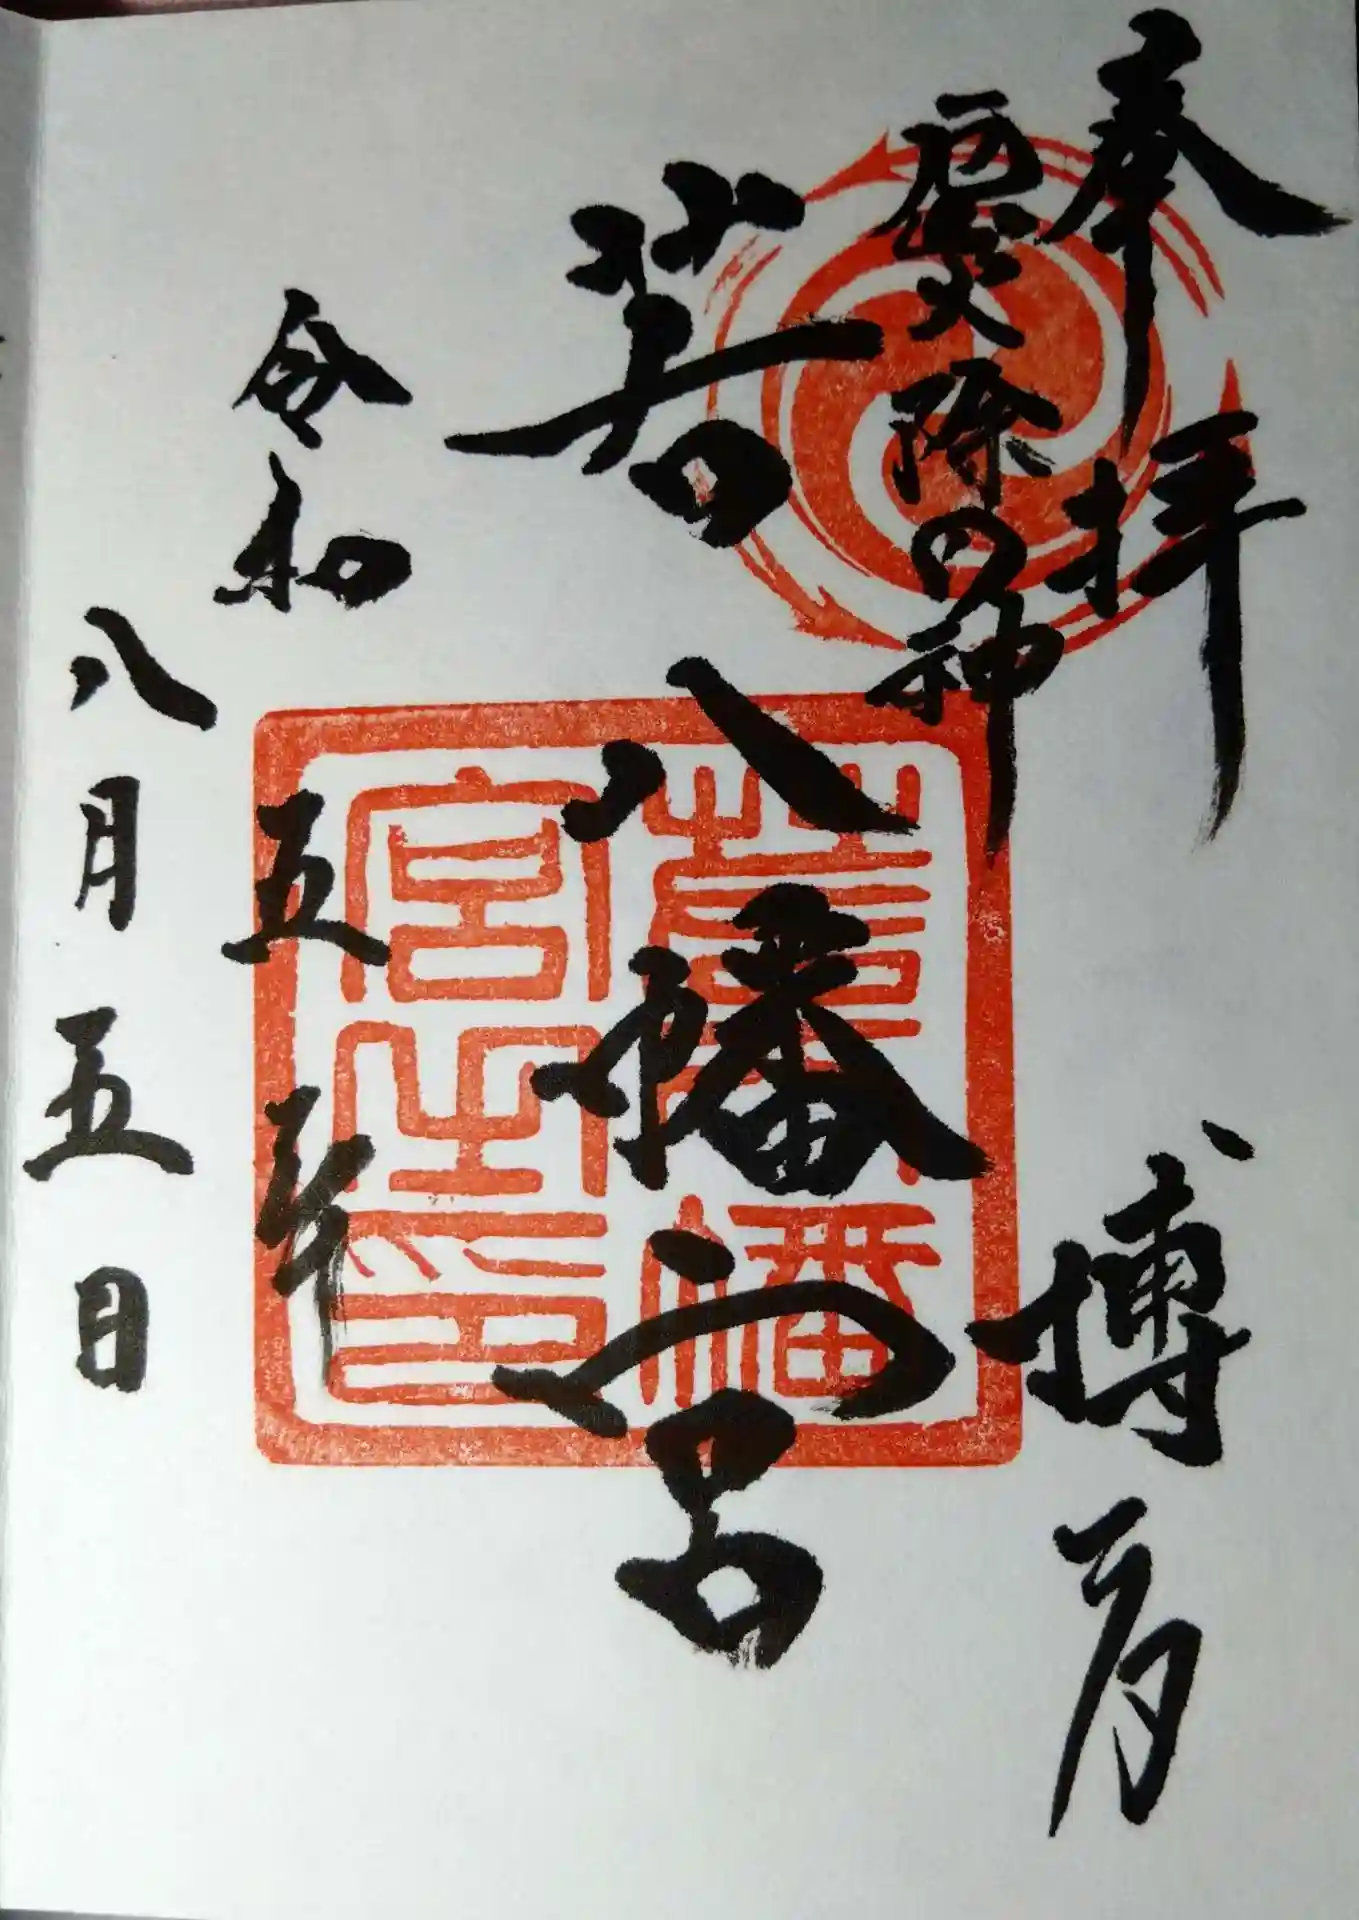 奉拝 博多
厄災除の神
若八幡宮
若八幡
宮之印
令和五年
八月五日